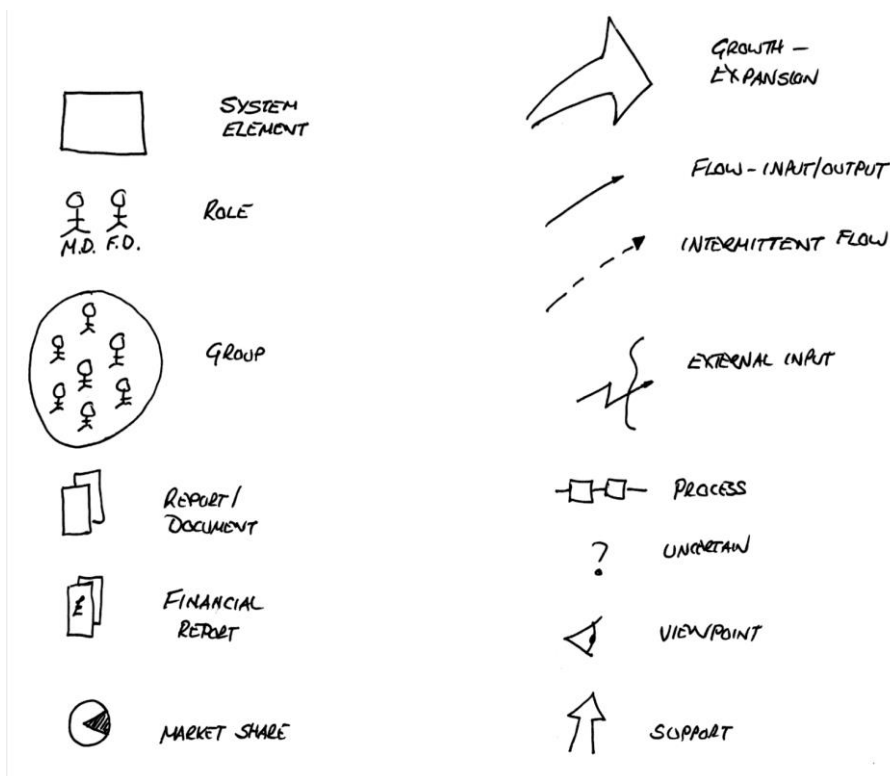 SYSTEM
ELEMENT
M.D. F.D.
ROLE
GROUP
REPORT/
DOCUMENT
£
FINANCIAL
REPORT
MARKET SHARE
GROWTH -
EXPANSION
FLOW - INPUT/OUTPUT
INTERMITTENT FLOW
EXTERNAL INPUT
PROCESS
?
UNCERTAIN
VIEWPOINT
SUPPORT